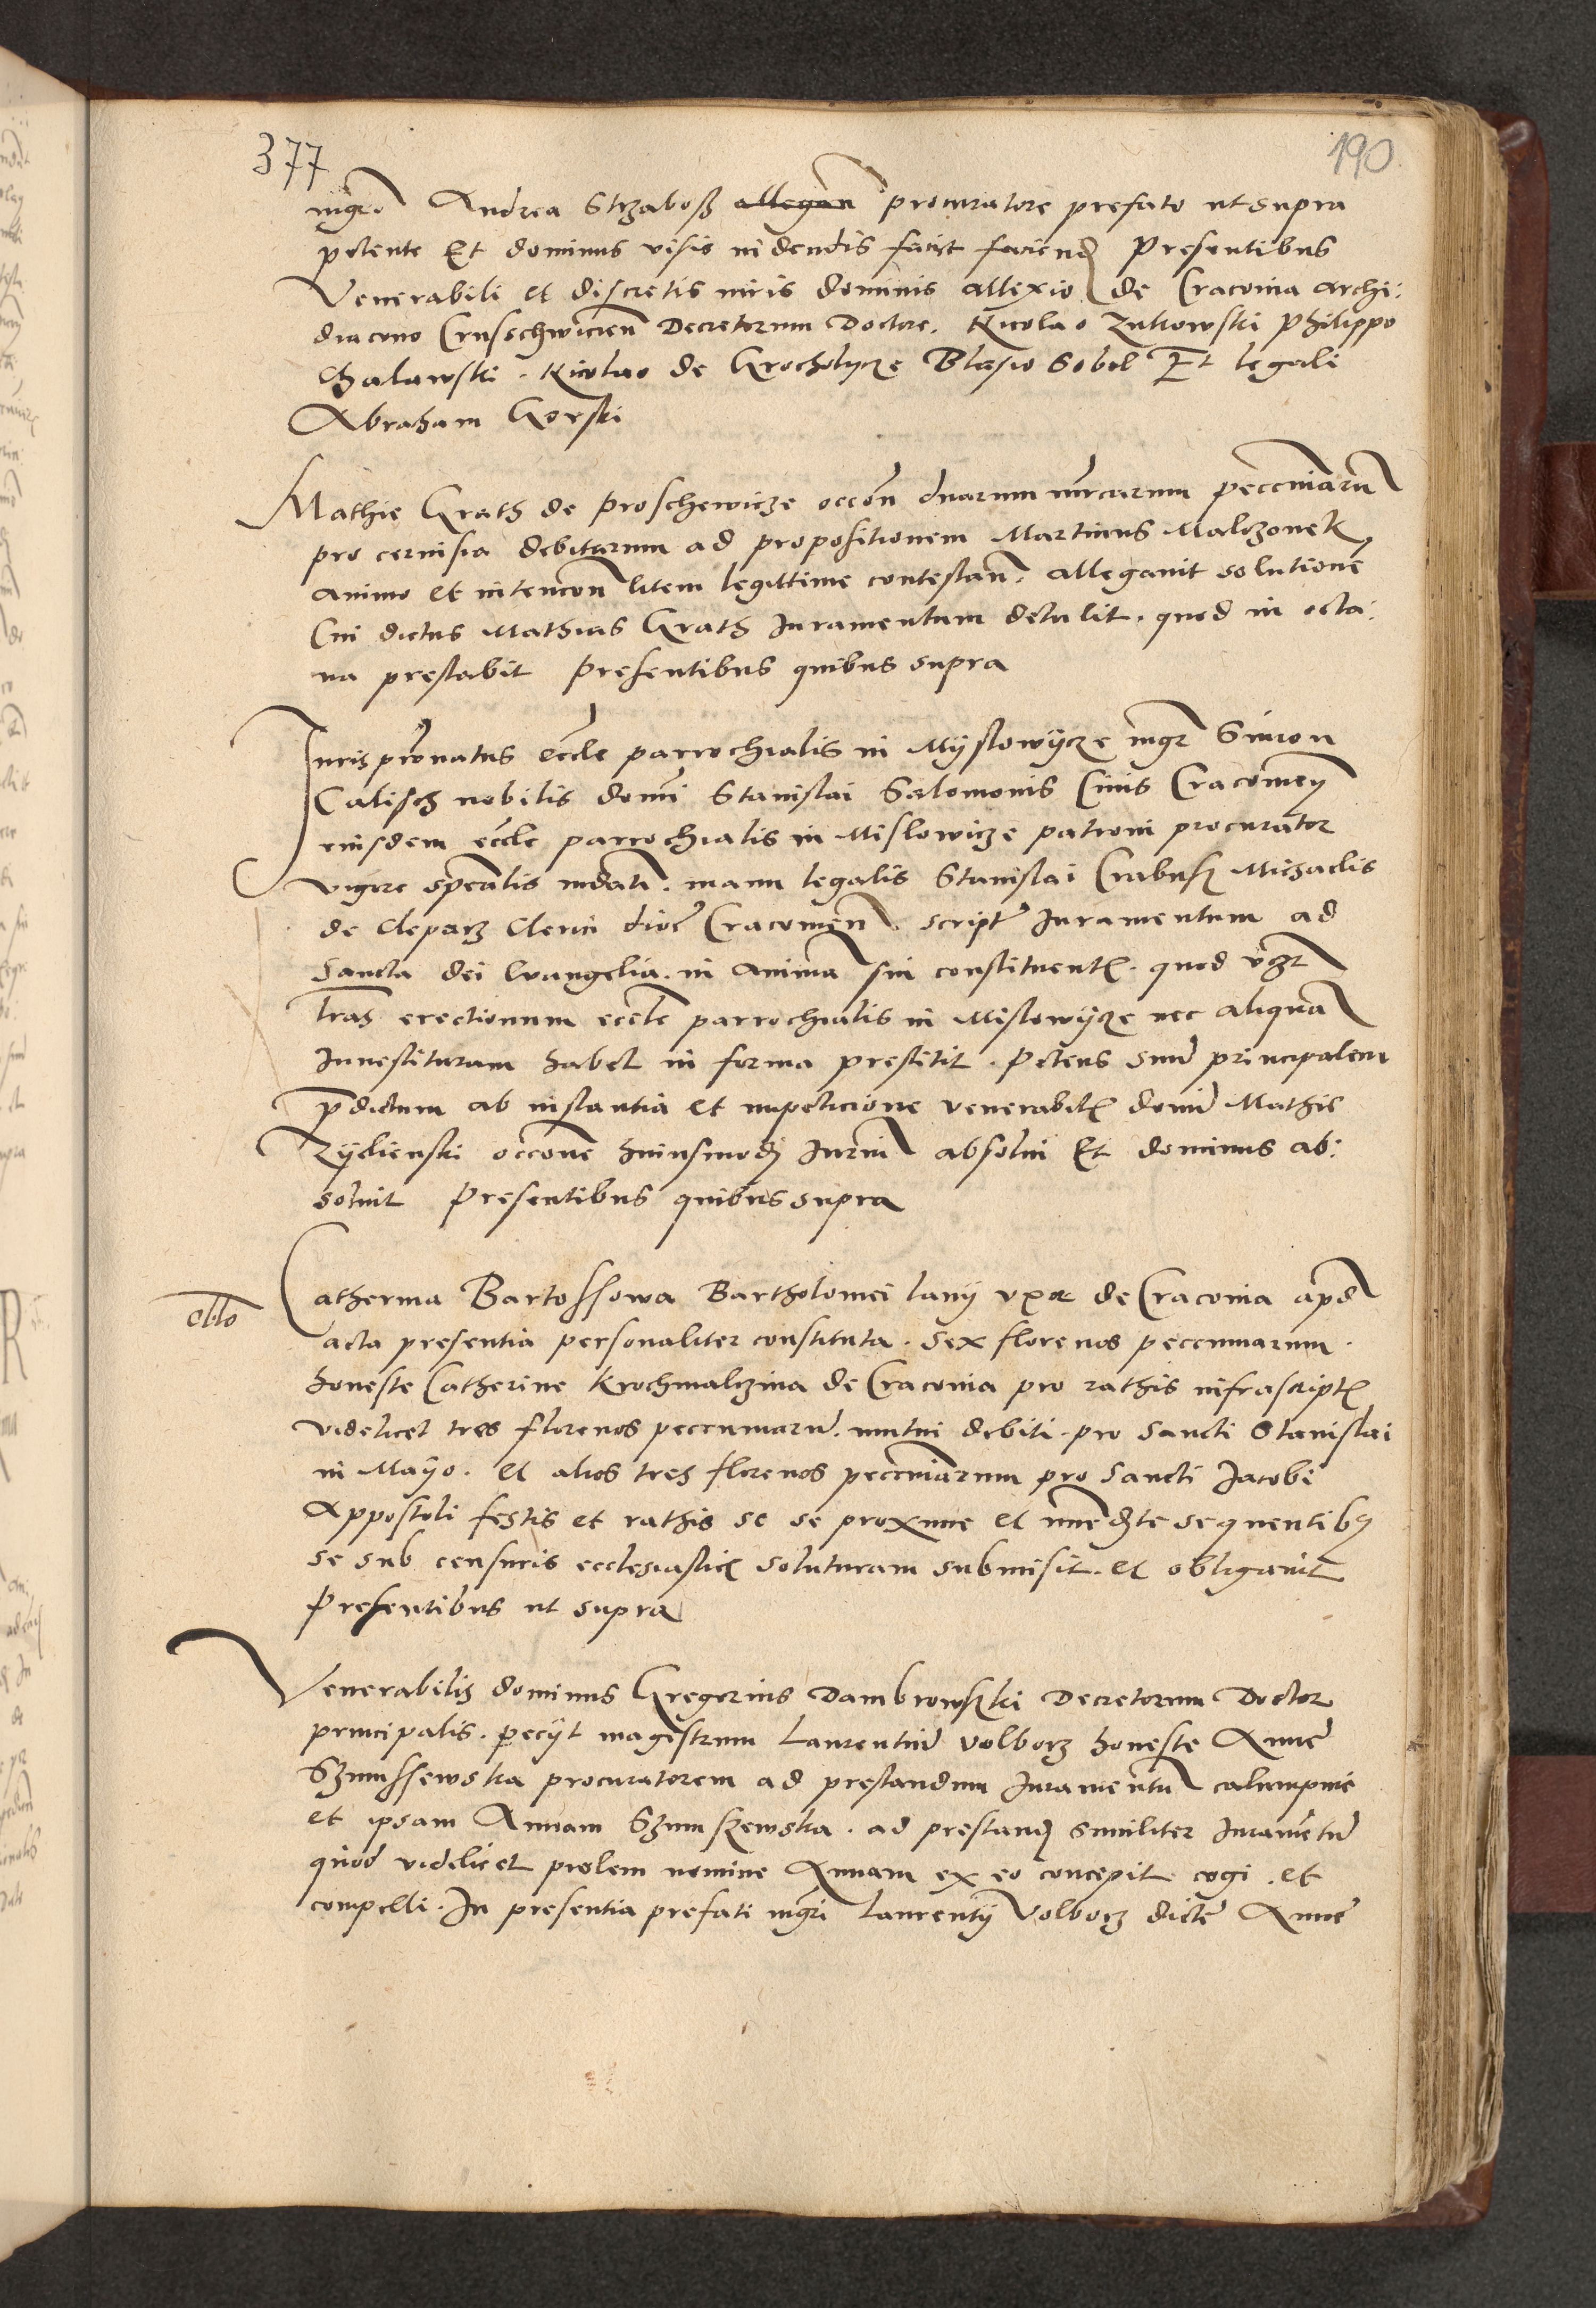 377
190
mgro Andrea Strzaboß allegan procuratore prefato ut supra
petente Et dominus visis videndis facit faciend Presentibus
Venerabili et discretis viris dominis allexio de Cracovia archi:
diacono Crusschwicien Decretorum Doctore. Nicolao Zukowski Philippo
Chalawski. Nicolao de Grocholycze Blasio Sobol Et legali
Abraham Gorski
Mathie Grath de Proschewicze occon duarum mrcarum peccuniaru
pro cervisia debitarum ad propositionem Martinus Malczonek
animo et intencon litem legittime contestan. allegavit solutione
Cui dictus Mathias Grath Juramentum detulit. quod in octa:
va prestabit Presentibus quibus supra
Juris pronatus eccle parrochialis in Myslowycze mgr Simon
Calisch nobilis domi Stanislai Salomonis Civis Cracovien
eiusdem eccle parrochialis in Mislowicze patroni procurator
vigore specialis mdati. manu legalis Stanislai Crabusz Michaelis
de Cleparz Clerici dioc Cracovien. script Juramentum ad
Sancta dei Evangelia. in anima sui constituent. quod
lras erectionum eccle parrochialis in Mislowycze nec aliqua
Investituram habet in forma prestitit. Petens suu principalem
pdictum ab instantia et impeticione venerabil domi Mathie
Zyelienski occone huiusmodi absolvi Et dominus ab:
solvit Presentibus quibus supra
obl̄o
Catherina Bartossowa Bartholomei lanij uxor de Cracovia apd
acta presentia personaliter constituta. Sex florenos peccuniarum.
honeste Catherine Krochmalczina de Cracovia pro rathis infrascript
videlicet tres florenos peccuniaru. mutui debiti. pro Sancti Stanislai
in Mayo. et alios tres florenos peccuniarum pro Sancti Jacobi
Appostoli festis et rathis se se proxime et immediate sequentibus
se sub censuris ecclesiastic soluturam submisit. et obligavit
Presentibus ut supra
Venerabilis dominus Gregorius Dambrowszki Decretorum Doctor
principalis. pecijt magistrum Laurentiu Volborz honeste Anne
Szumssewska procuratorem ad prestandum Juramentu calumpnie
et ipsam Annam Szumszewska. ad prestand similiter Juramentu
quod videlicet prolem nomine Annam ex eo concepit cogi. et
compelli. In presentia prefati mgri Laurentij Volborz dicte Anne